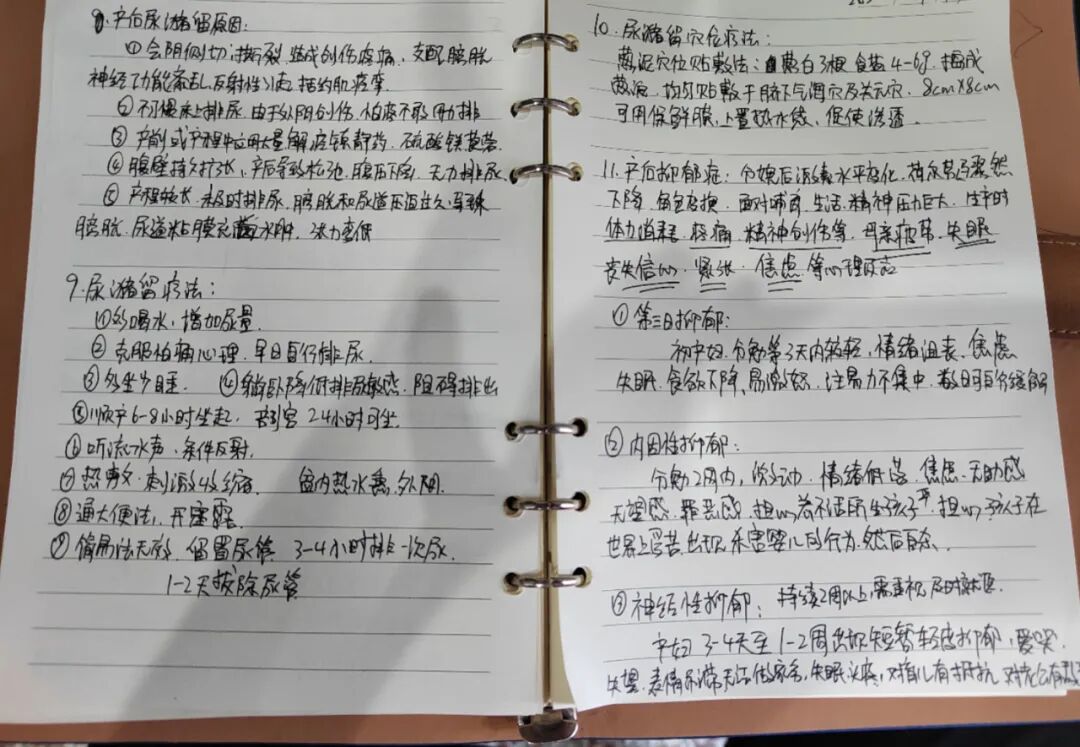 8.产后尿潴留原因:
①会阴侧切、撕裂造成创伤疼痛、支配膀胱
神经功能紊乱,反射性引起括约肌痉挛
②不习惯床上排尿,由于外阴创伤,怕疼不敢用力排
③产前或产程中应用大量解痉镇静药、硫酸镁
④腹壁持久扩张,产后导致松弛,腹压下降,无力排尿
⑤产程较长,未及时排尿,膀胱和尿道压迫过久,导致
膀胱、尿道粘膜充血水肿,张力变低
9.尿潴留疗法:
①多喝水,增加尿量
②克服怕痛心理,早日自行排尿.
③多坐少睡 ④躺卧降低排尿敏感,阻碍排出
⑤顺产6-8小时坐起,剖宫24小时可坐.
⑥听流水声,条件反射,
⑦热敷,刺激收缩 盆内热水熏外阴.
⑧通大便法,开塞露.
⑨偏方法无效,留置尿管 3-4小时排一次尿.
1-2天拔除尿管
10.尿潴留穴位疗法:
葱泥穴位贴敷法:葱白3根 食盐4-6g,捣成
葱泥,均匀贴敷于脐下气海穴及关元穴,8cm×8cm
可用保鲜膜,上置热水袋,促使渗透.
11.产后抑郁症:分娩后激素水平变化,荷尔蒙骤然
下降,角色变换,面对哺育、生活、精神压力巨大,生产时
体力消耗,疼痛,精神创伤等,母亲疲劳,失眠
丧失信心,紧张,焦虑,等心理反应
①第三日抑郁:
初产妇,分娩第3天内较轻,情绪沮丧、焦虑
失眠、食欲下降、易激怒、注意力不集中,数日可自行缓解
②内因性抑郁:
分娩2周内,激动,情绪低落、焦虑、无助感
无望感、罪恶感,担心养不活所生孩子,担心孩子在
世界上受苦,出现杀害婴儿的行为,然后自杀.
③神经性抑郁:持续2周以上,需重视,及时
产妇3-4天至1-2周出现短暂轻度抑郁,爱哭,
失望,表情,失眠,头疼,对婴儿有抵抗,对老公有